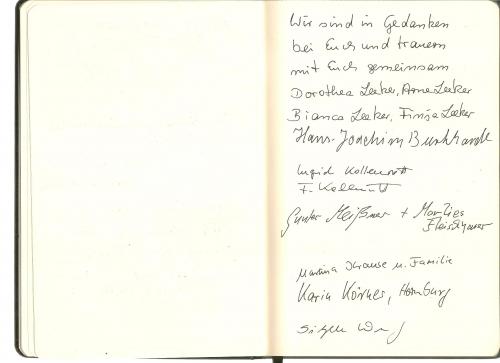 Wir sind in Gedanken
bei Euch und trauern
mit Euch gemeinsam
Dorothea Leeker, Arne Leeker
Bianca Leeker, Finja Leeker
Hans-Joachim Burkhardt
Ingrid
F.
Gunter Meißner + Marlies
Martina Krause u. Familie
Karin Körner, Homburg